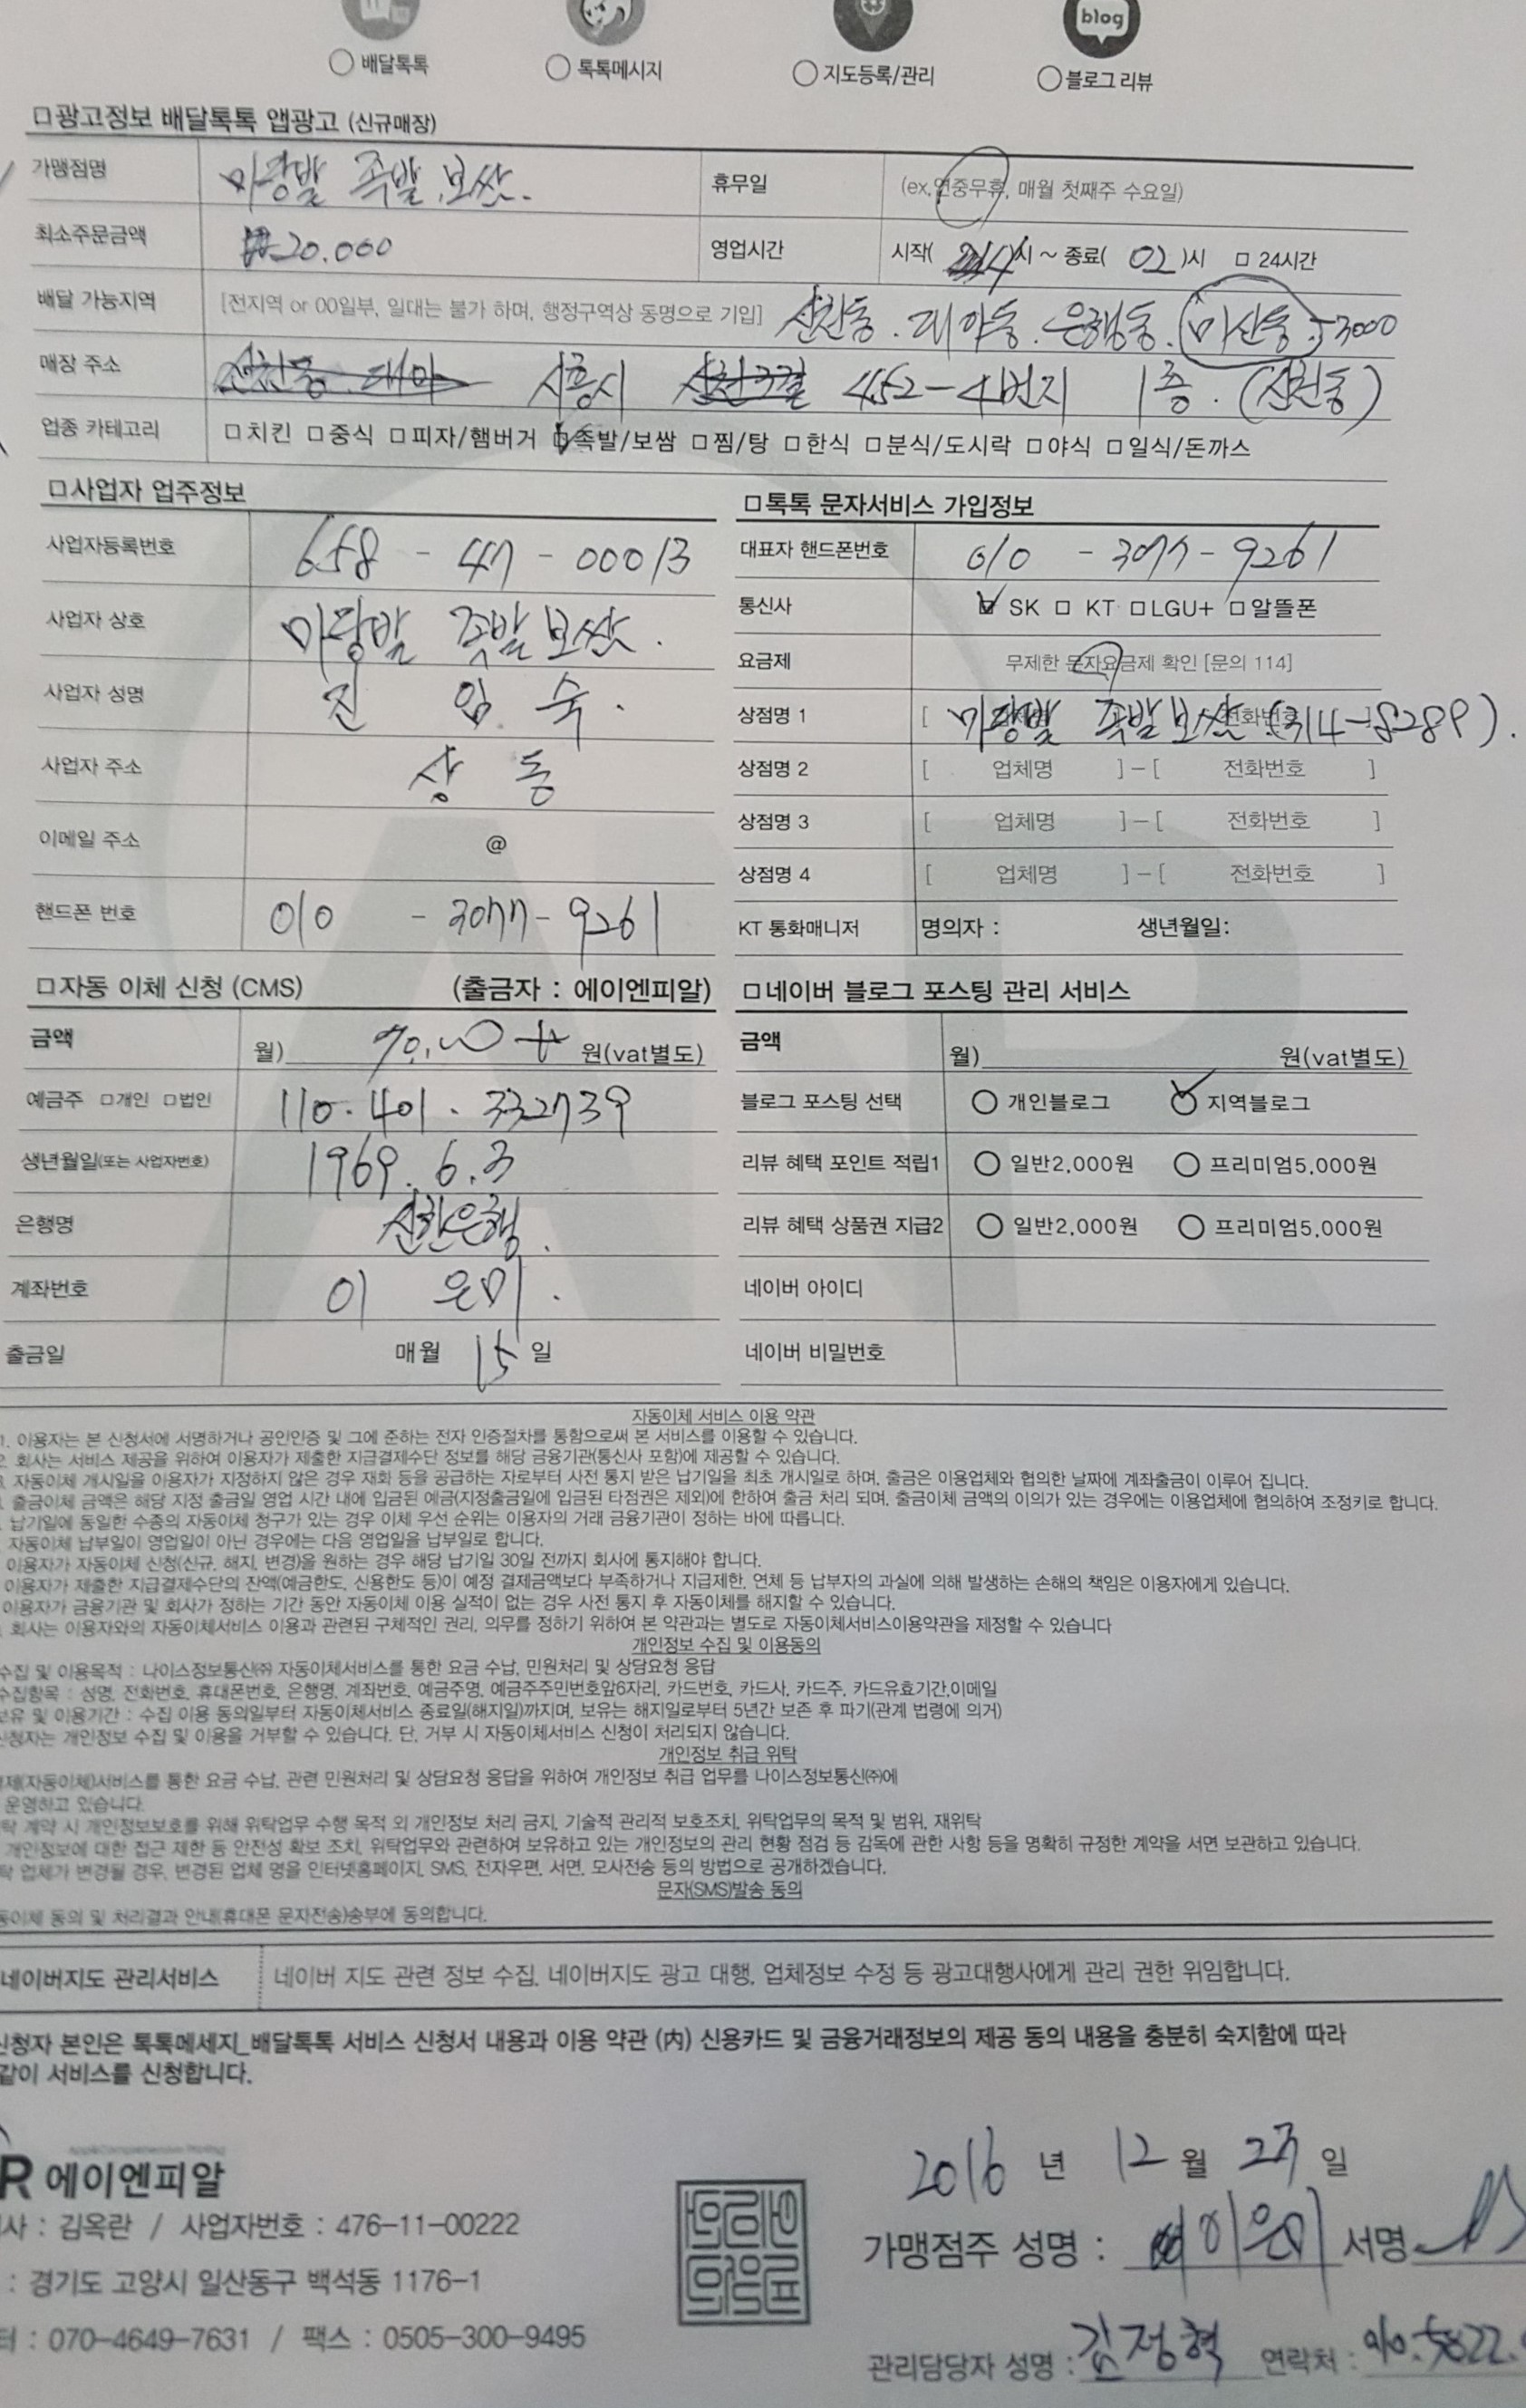 blog
○ 배달톡톡 ○ 톡톡메시지 ○ 지도등록/관리 ○ 블로그 리뷰
□광고정보 배달톡톡 앱광고 (신규매장)
가맹점명 마당발 족발.보쌈. 휴무일 (ex.연중무휴, 매월 첫째주 수요일)
최소주문금액 ₩20.000 영업시간 시작( )시 ~ 종료( 02 )시 □ 24시간
배달 가능지역 [전지역 or 00일부, 일대는 불가 하며, 행정구역상 동명으로 기입] 신천동. 대야동. 은행동. 미산동. 3000
매장 주소 시흥시 452-4번지 1층. (신천동)
업종 카테고리 □치킨 □중식 □피자/햄버거 ☑족발/보쌈 □찜/탕 □한식 □분식/도시락 □야식 □일식/돈까스
□사업자 업주정보
사업자등록번호 658 - 47 - 00013
사업자 상호 마당발 족발보쌈.
사업자 성명 진 임 숙.
사업자 주소 상 동
이메일 주소 @
핸드폰 번호 010 - 3077 - 9261
□톡톡 문자서비스 가입정보
대표자 핸드폰번호 010 - 3077 - 9261
통신사 ☑ SK □ KT □LGU+ □알뜰폰
요금제 무제한 문자요금제 확인 [문의 114]
상점명 1 [ 마당발 족발보쌈 (314-8289).
상점명 2 [ 업체명 ]-[ 전화번호 ]
상점명 3 [ 업체명 ]-[ 전화번호 ]
상점명 4 [ 업체명 ]-[ 전화번호 ]
KT 통화매니저 명의자 : 생년월일:
□자동 이체 신청 (CMS) (출금자 : 에이엔피알)
금액 월) 원(vat별도)
예금주 □개인 □법인 110.401.332739
생년월일(또는 사업자번호) 1969.6.3
은행명 신한은행.
계좌번호 이 은미.
출금일 매월 15 일
□네이버 블로그 포스팅 관리 서비스
금액 월) 원(vat별도)
블로그 포스팅 선택 ○ 개인블로그 ☑ 지역블로그
리뷰 혜택 포인트 적립1 ○ 일반2,000원 ○ 프리미엄5,000원
리뷰 혜택 상품권 지급2 ○ 일반2,000원 ○ 프리미엄5,000원
네이버 아이디
네이버 비밀번호
자동이체 서비스 이용 약관
1. 이용자는 본 신청서에 서명하거나 공인인증 및 그에 준하는 전자 인증절차를 통함으로써 본 서비스를 이용할 수 있습니다.
2. 회사는 서비스 제공을 위하여 이용자가 제출한 지급결제수단 정보를 해당 금융기관(통신사 포함)에 제공할 수 있습니다.
자동이체 개시일을 이용자가 지정하지 않은 경우 재화 등을 공급하는 자로부터 사전 통지 받은 납기일을 최초 개시일로 하며, 출금은 이용업체와 협의한 날짜에 계좌출금이 이루어 집니다.
출금이체 금액은 해당 지정 출금일 영업 시간 내에 입금된 예금(지정출금일에 입금된 타점권은 제외)에 한하여 출금 처리 되며, 출금이체 금액의 이의가 있는 경우에는 이용업체에 협의하여 조정키로 합니다.
납기일에 동일한 수종의 자동이체 청구가 있는 경우 이체 우선 순위는 이용자의 거래 금융기관이 정하는 바에 따릅니다.
자동이체 납부일이 영업일이 아닌 경우에는 다음 영업일을 납부일로 합니다.
이용자가 자동이체 신청(신규, 해지, 변경)을 원하는 경우 해당 납기일 30일 전까지 회사에 통지해야 합니다.
이용자가 제출한 지급결제수단의 잔액(예금한도, 신용한도 등)이 예정 결제금액보다 부족하거나 지급제한, 연체 등 납부자의 과실에 의해 발생하는 손해의 책임은 이용자에게 있습니다.
이용자가 금융기관 및 회사가 정하는 기간 동안 자동이체 이용 실적이 없는 경우 사전 통지 후 자동이체를 해지할 수 있습니다.
회사는 이용자와의 자동이체서비스 이용과 관련된 구체적인 권리, 의무를 정하기 위하여 본 약관과는 별도로 자동이체서비스이용약관을 제정할 수 있습니다
개인정보 수집 및 이용동의
수집 및 이용목적 : 나이스정보통신㈜ 자동이체서비스를 통한 요금 수납, 민원처리 및 상담요청 응답
수집항목 : 성명, 전화번호, 휴대폰번호, 은행명, 계좌번호, 예금주명, 예금주주민번호앞6자리, 카드번호, 카드사, 카드주, 카드유효기간,이메일
보유 및 이용기간 : 수집 이용 동의일부터 자동이체서비스 종료일(해지일)까지며, 보유는 해지일로부터 5년간 보존 후 파기(관계 법령에 의거)
신청자는 개인정보 수집 및 이용을 거부할 수 있습니다. 단, 거부 시 자동이체서비스 신청이 처리되지 않습니다.
개인정보 취급 위탁
제(자동이체)서비스를 통한 요금 수납, 관련 민원처리 및 상담요청 응답을 위하여 개인정보 취급 업무를 나이스정보통신㈜에
운영하고 있습니다.
탁 계약 시 개인정보보호를 위해 위탁업무 수행 목적 외 개인정보 처리 금지, 기술적 관리적 보호조치, 위탁업무의 목적 및 범위, 재위탁
개인정보에 대한 접근 제한 등 안전성 확보 조치, 위탁업무와 관련하여 보유하고 있는 개인정보의 관리 현황 점검 등 감독에 관한 사항 등을 명확히 규정한 계약을 서면 보관하고 있습니다.
탁 업체가 변경될 경우, 변경된 업체 명을 인터넷홈페이지, SMS, 전자우편, 서면, 모사전송 등의 방법으로 공개하겠습니다.
문자(SMS)발송 동의
동이체 동의 및 처리결과 안내(휴대폰 문자전송)송부에 동의합니다.
네이버지도 관리서비스 네이버 지도 관련 정보 수집, 네이버지도 광고 대행, 업체정보 수정 등 광고대행사에게 관리 권한 위임합니다.
신청자 본인은 톡톡메세지_배달톡톡 서비스 신청서 내용과 이용 약관 (內) 신용카드 및 금융거래정보의 제공 동의 내용을 충분히 숙지함에 따라
같이 서비스를 신청합니다.
R 에이엔피알
사 : 김옥란 / 사업자번호 : 476-11-00222
: 경기도 고양시 일산동구 백석동 1176-1
터 : 070-4649-7631 / 팩스 : 0505-300-9495
2016 년 12 월 27 일
가맹점주 성명 : 이은미 서명
관리담당자 성명 : 김정혁 연락처 : 010.5822.